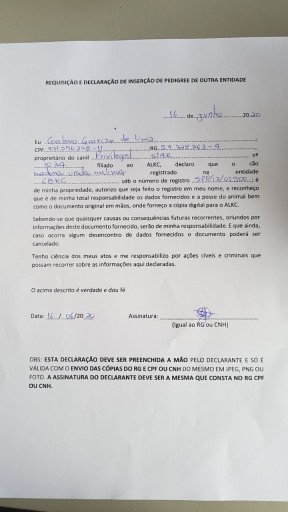 REQUISIÇÃO E DECLARAÇÃO DE INSERÇÃO DE PEDIGREE DE OUTRA ENTIDADE
16 de junho 2020
Eu Gustavo de lima
CPF RG
proprietário do canil Privileged STAR nº
, filiado ao ALKC, declaro que o cão
registrado na entidade
CBKC sob o número de registro é
de minha propriedade, autorizo que seja feito o registro em meu nome, e reconheço
que é de minha total responsabilidade os dados fornecidos e a posse do animal bem
como o documento original em mãos, onde forneço a cópia digital para o ALKC.
Sabendo-se que quaisquer causas ou consequências futuras recorrentes, oriundos por
informações deste documento fornecido, serão de minha responsabilidade. E que ainda,
caso ocorra algum desencontro de dados fornecidos o documento poderá ser
cancelado.
Tenho ciência dos meus atos e me responsabilizo por ações cíveis e criminais que
possam recorrer sobre as informações aqui declaradas.
O acima descrito é verdade e dou fé
Data: 16 / 06 /20 20 Assinatura:
(Igual ao RG ou CNH)
OBS: ESTA DECLARAÇÃO DEVE SER PREENCHIDA A MÃO PELO DECLARANTE E SÓ É
VÁLIDA COM O ENVIO DAS CÓPIAS DO RG E CPF OU CNH DO MESMO EM JPEG, PNG OU
FOTO. A ASSINATURA DO DECLARANTE DEVE SER A MESMA QUE CONSTA NO RG CPF
OU CNH.